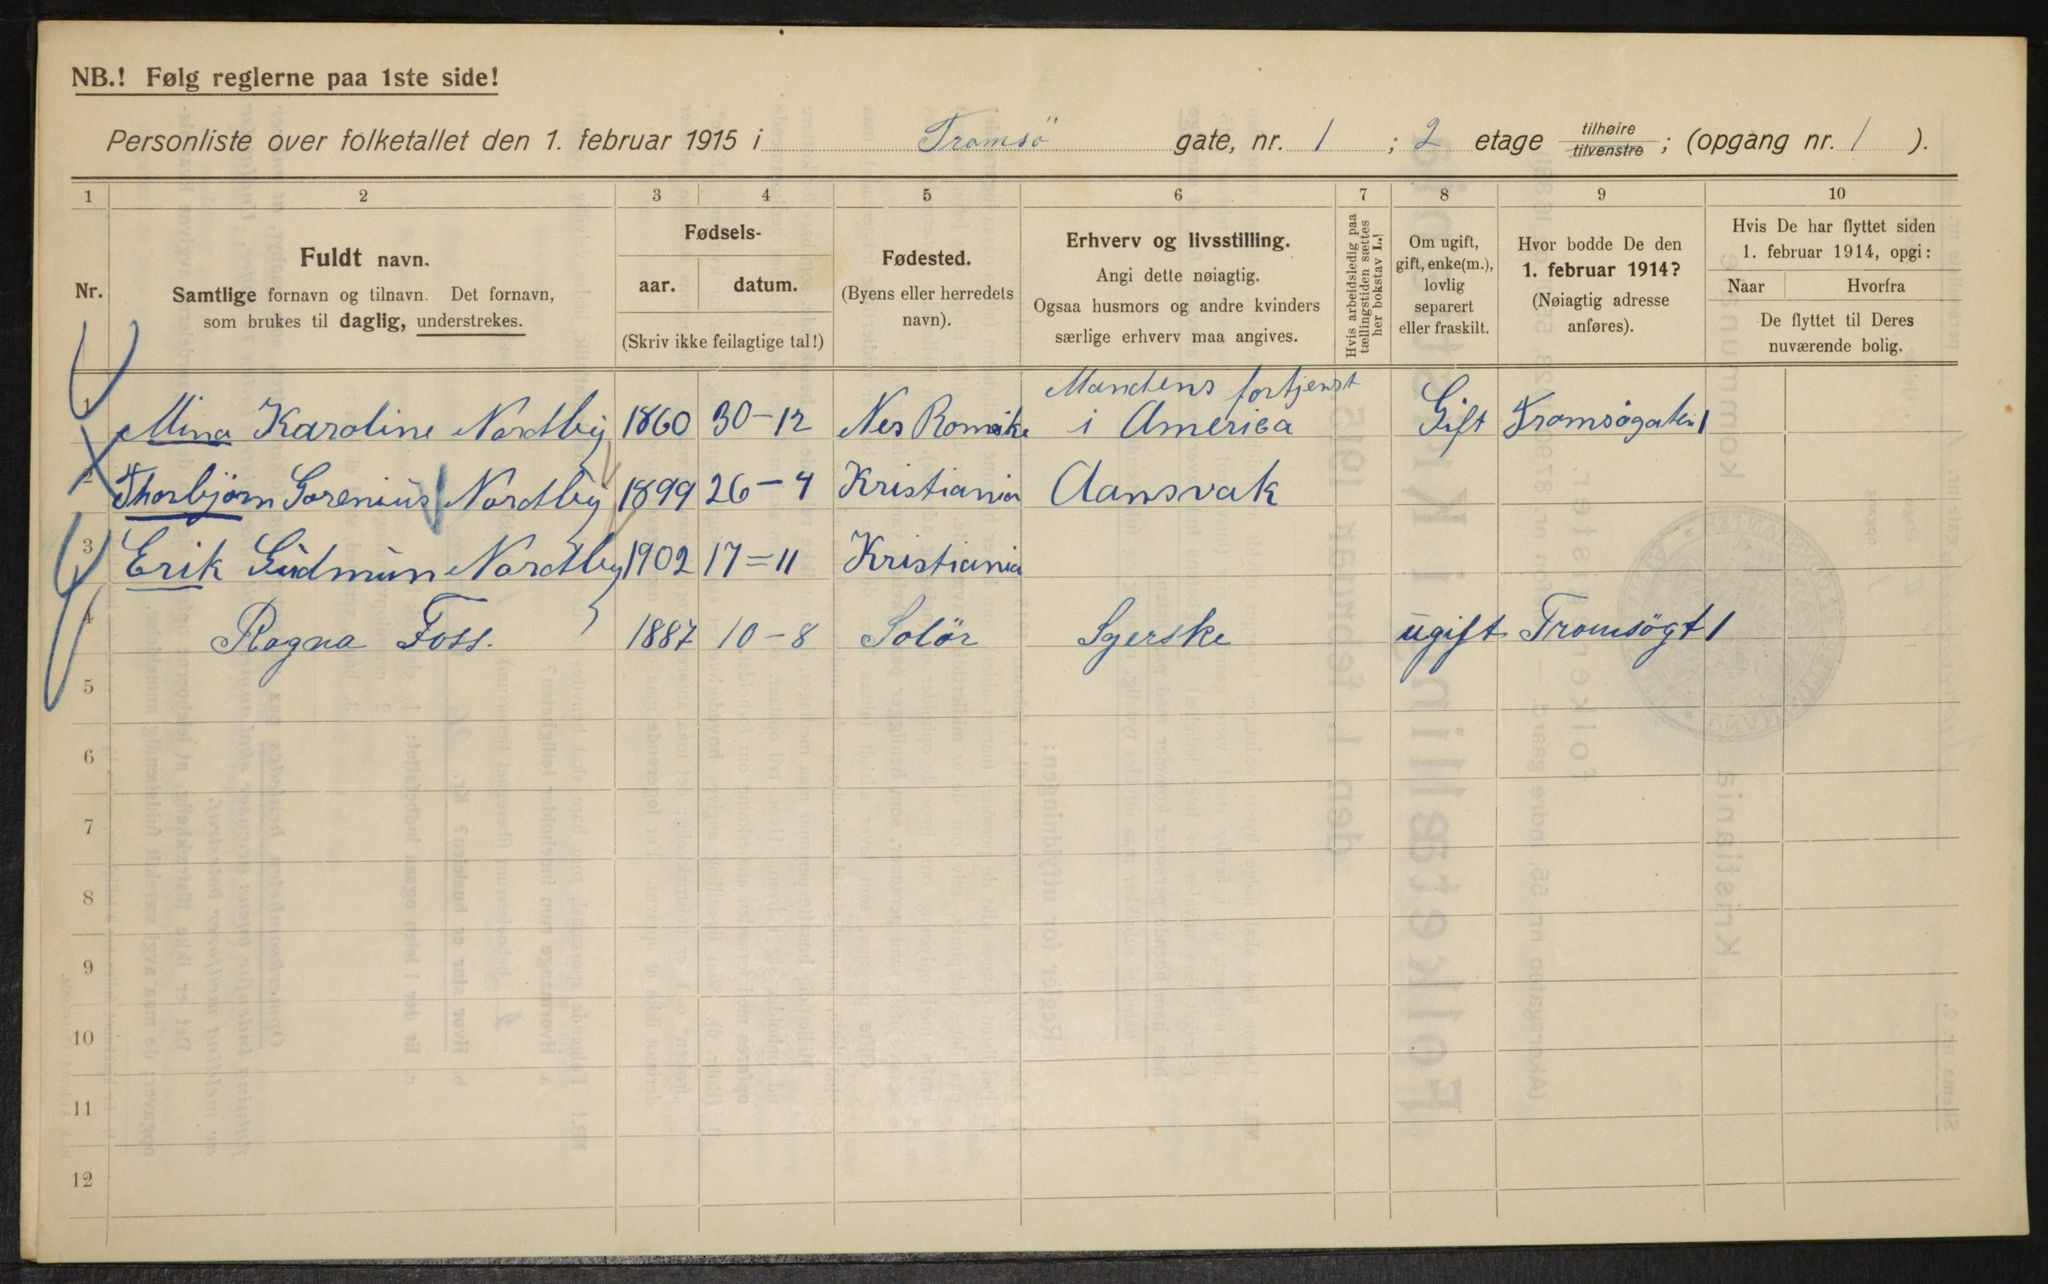 NB.! Følg reglerne paa 1ste side!
Personliste over folketallet den 1. februar 1915 i Tromsö gate, nr. 1 ; 2 etage tilhøire tilvenstre ; (opgang nr. 1 ).
1 2 3 4 5 6 7 8 9 10
Nr.
Fuldt navn.
Samtlige fornavn og tilnavn. Det fornavn,
som brukes til daglig, understrekes.
Fødsels-
aar. datum.
(Skriv ikke feilagtige tal!)
Fødested.
(Byens eller herredets
navn).
Erhverv og livsstilling.
Angi dette nøiagtig.
Ogsaa husmors og andre kvinders
særlige erhverv maa angives.
Hvis arbeidsledig paa
tællingstiden sættes
her bokstav L.!
Om ugift,
gift, enke(m.),
lovlig
separert
eller fraskilt.
Hvor bodde De den
1. februar 1914?
(Nøiagtig adresse
anføres).
Hvis De har flyttet siden
1. februar 1914, opgi:
Naar Hvorfra
De flyttet til Deres
nuværende bolig.
Mandens fortjenst
1 Mina Karoline Nordby 1860 30-12 Nes Romrike i America Gift Tromsøgaten 1
2 Thorbjørn Sorenius Nordby 1899 26-4 Kristiania Aansvak
3 Erik Gudmun Nordby 1902 17=11 Kristiania
4 Ragna Foss. 1887 10-8 Solör Syerske ugift Tromsögt 1
5
6
7
8
9
10
11
12